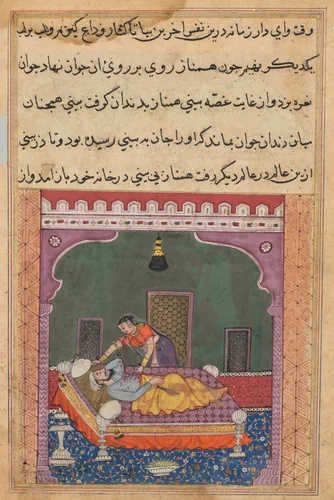 وقت وای دار زمانه درین نفس آخرین بیا تا کنار و داع کنیم و لب بر لب
یکدیگر نهیم چون همناز روی بر روی آن جوان نهاد جوان
نعره بزد و از غایت غصه بینی همناز بدندان گرفت بینی همچنان
میان دندان جوان بماند که او را جان به بینی رسیده بود و تا زر بینی
ازین عالم در عالم دیگر رفت همناز بی بینی در خانه خود باز آمد و از